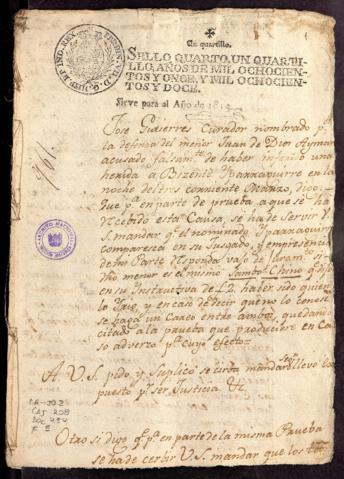 Un quartillo.
SELLO QUARTO, UN QUARTI-
LLO, AÑOS DE MIL OCHOCIEN-
TOS Y ONCE, Y MIL OCHOCIEN-
TOS Y DOCE.
Sirve para el Año de 1815
Jose Gutierres Curador nombrado pª
la defensa del menor Juan de Dios Aymar
acusado falsamte de haber inferido una
herida a Bizente Yparraguirre en la
noche del tres corriente Marzo, digo:
Que pª en parte de prueba, a que se ha
recebido esta Causa, se ha de Servir V.
S. mandar qe el nominado Yparraguirre
comparesca en su Jusgado, y en presencia
de mi Parte responda vajo de Juramto si
dho menor es el mismo Sambo Chino qe dijo
en su Instructiva de f.2. haber sido quien
lo y en caso decir qe no lo conose
se haga un Careo entre ambos, quedando
citado a la prueba que produciere en Ca-
so adverzo pª cuyo efecto=
A V.S. pido y Suplico se sirva mandar lleve lo ex-
puesto pr ser Justicia &c.
Otro si digo qe pª en parte de la misma Prueba
se ha de cerbir V.S. mandar que los
CAJ 208
DOC 494